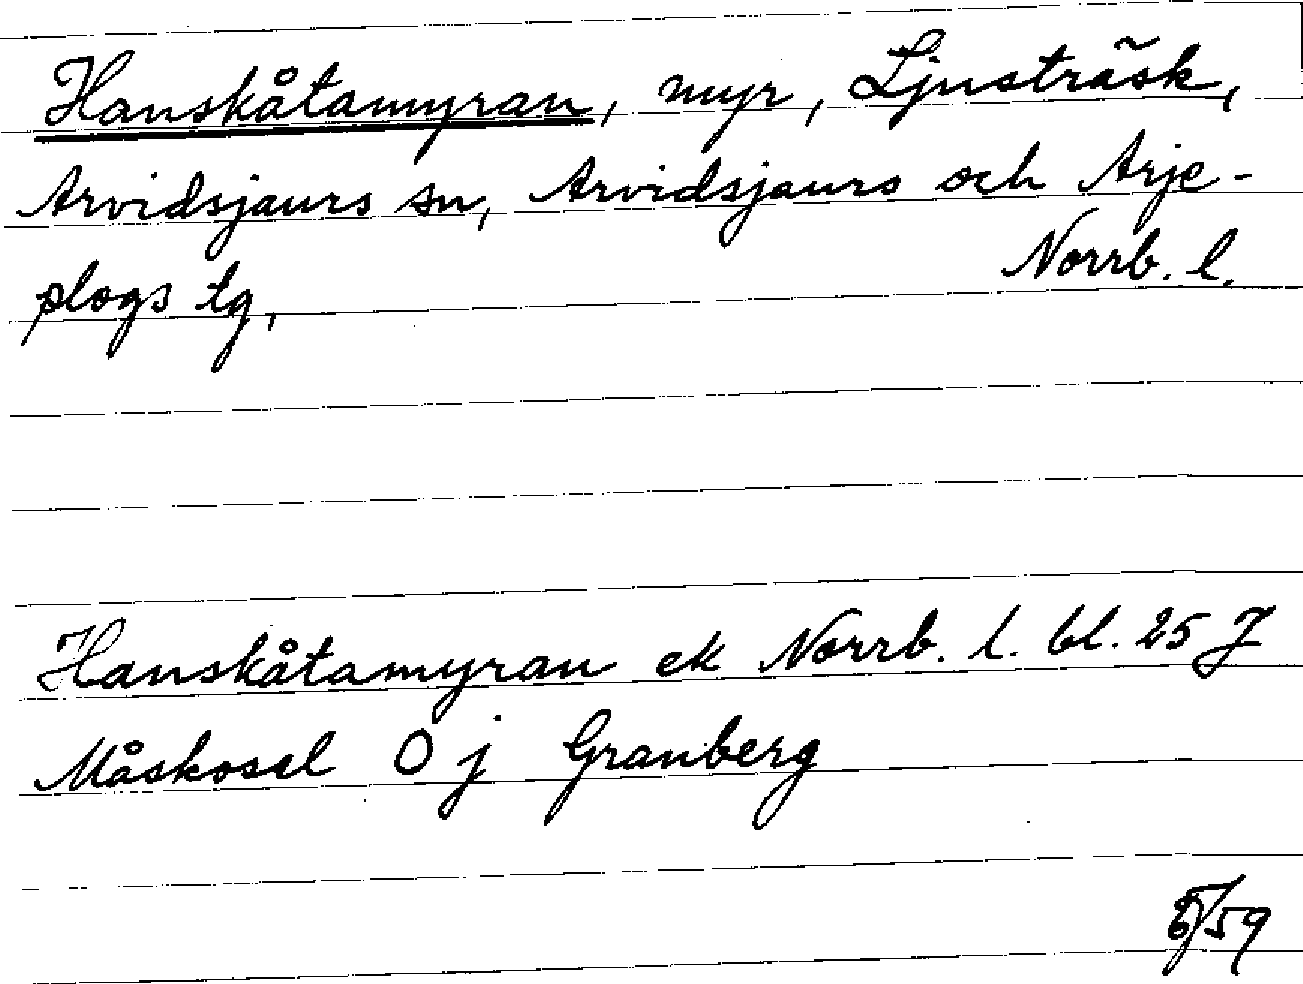 Hanskåtamyran, myr, Ljusträsk,
Arvidsjaurs sn, Arvidsjaurs och Arje-
plogs tg, Norrb. l.
Hanskåtamyran ek Norrb. l. bl. 25 J
Måskosel O j Granberg